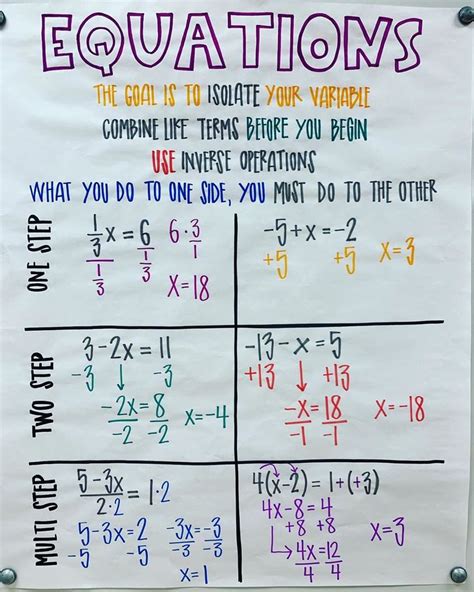 EQUATIONS
THE GOAL IS TO ISOLATE YOUR VARIABLE
COMBINE LIKE TERMS BEFORE YOU BEGIN
USE INVERSE OPERATIONS
WHAT YOU DO TO ONE SIDE, YOU MUST DO TO THE OTHER
ONE STEP
1/3 x = 6 6·3/1
1/3 1/3
x=18
-5+x=-2
+5 +5 x=3
TWO STEP
3-2x=11
-3 ↓ -3
-2x=8 x=-4
-2 -2
-13-x=5
+13 ↓ +13
-x=18 x=-18
-1 -1
MULTI STEP
5-3x/2·2 = 1·2
5-3x=2 -3x=-3
-5 -5 -3 -3
x=1
4(x-2)=1+(+3)
4x-8=4
+8 +8 x=3
↳4x=12
4 4